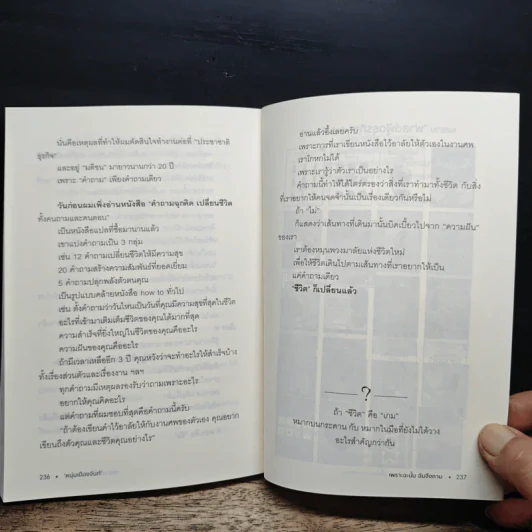 นั่นคือเหตุผลที่ทำให้ผมตัดสินใจทำงานต่อที่ "ประชาชาติ
ธุรกิจ"
และอยู่ "มติชน" มายาวนานกว่า 20 ปี
เพราะ "คำถาม" เพียงคำถามเดียว
วันก่อนผมเพิ่งอ่านหนังสือ "คำถามฉุกคิด เปลี่ยนชีวิต
ทั้งคนถามและคนตอบ"
เป็นหนังสือแปลที่ซื้อมานานแล้ว
เขาแบ่งคำถามเป็น 3 กลุ่ม
เช่น 12 คำถามเปลี่ยนชีวิตให้มีความสุข
20 คำถามสร้างความสัมพันธ์ที่ยอดเยี่ยม
5 คำถามปลุกพลังตัวตน
เป็นรูปแบบคล้ายหนังสือ how to ทั่วไป
เช่น ตั้งคำถามว่าวันไหนเป็นวันที่คุณมีความสุขที่สุดในชีวิต
อะไรที่เข้ามาเติมเต็มชีวิตของคุณได้มากที่สุด
ความสำเร็จที่ยิ่งใหญ่ในชีวิตของคุณคืออะไร
ความฝันของคุณคืออะไร
ถ้ามีเวลาเหลืออีก 3 ปี คุณหวังว่าจะทำอะไรให้สำเร็จบ้าง
ทั้งเรื่องส่วนตัวและเรื่องงาน ฯลฯ
ทุกคำถามมีเหตุผลรองรับว่าถามเพราะอะไร
อยากให้คุณคิดอะไร
แต่คำถามที่ผมชอบที่สุดคือคำถามนี้ครับ
"ถ้าต้องเขียนคำไว้อาลัยให้กับงานศพของตัวเอง คุณอยาก
เขียนถึงตัวคุณและชีวิตคุณอย่างไร"
236 • 'หนุ่มเมืองจันท์'
อ่านแล้วอึ้งเลยครับ
เพราะการที่เราเขียนหนังสือไว้อาลัยให้ตัวเองในงานศพ
เราโกหกไม่ได้
เพราะเรารู้ว่าตัวเราเป็นอย่างไร
คำถามนี้ทำให้ได้ไตร่ตรองว่าสิ่งที่เราทำมาทั้งชีวิต กับสิ่ง
ที่เราอยากให้คนจดจำนั้นเป็นเรื่องเดียวกันหรือไม่
ถ้า "ไม่"
ก็แสดงว่าเส้นทางที่เดินมานั้นบิดเบี้ยวไปจาก "ความฝัน"
ของเรา
เราต้องหมุนพวงมาลัยแห่งชีวิตใหม่
เพื่อให้ชีวิตเดินไปตามเส้นทางที่เราอยากให้เป็น
แค่คำถามเดียว
"ชีวิต" ก็เปลี่ยนแล้ว
?
ถ้า "ชีวิต" คือ "เกม"
หมากบนกระดาน กับ หมากในมือที่ยังไม่ได้วาง
อะไรสำคัญกว่ากัน
เพราะฉะนั้น ฉันจึงถาม • 237